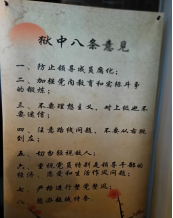 狱中八条意见
一、防止领导成员腐化；
二、加强党内教育和实际斗争
的锻炼；
三、不要理想主义，对上级也不
要迷信；
四、注意路线问题，不要从右跳
到左；
五、切勿轻视敌人；
六、重视党员特别是领导干部的
经济、恋爱和生活作风问题；
七、严格进行整党整风；